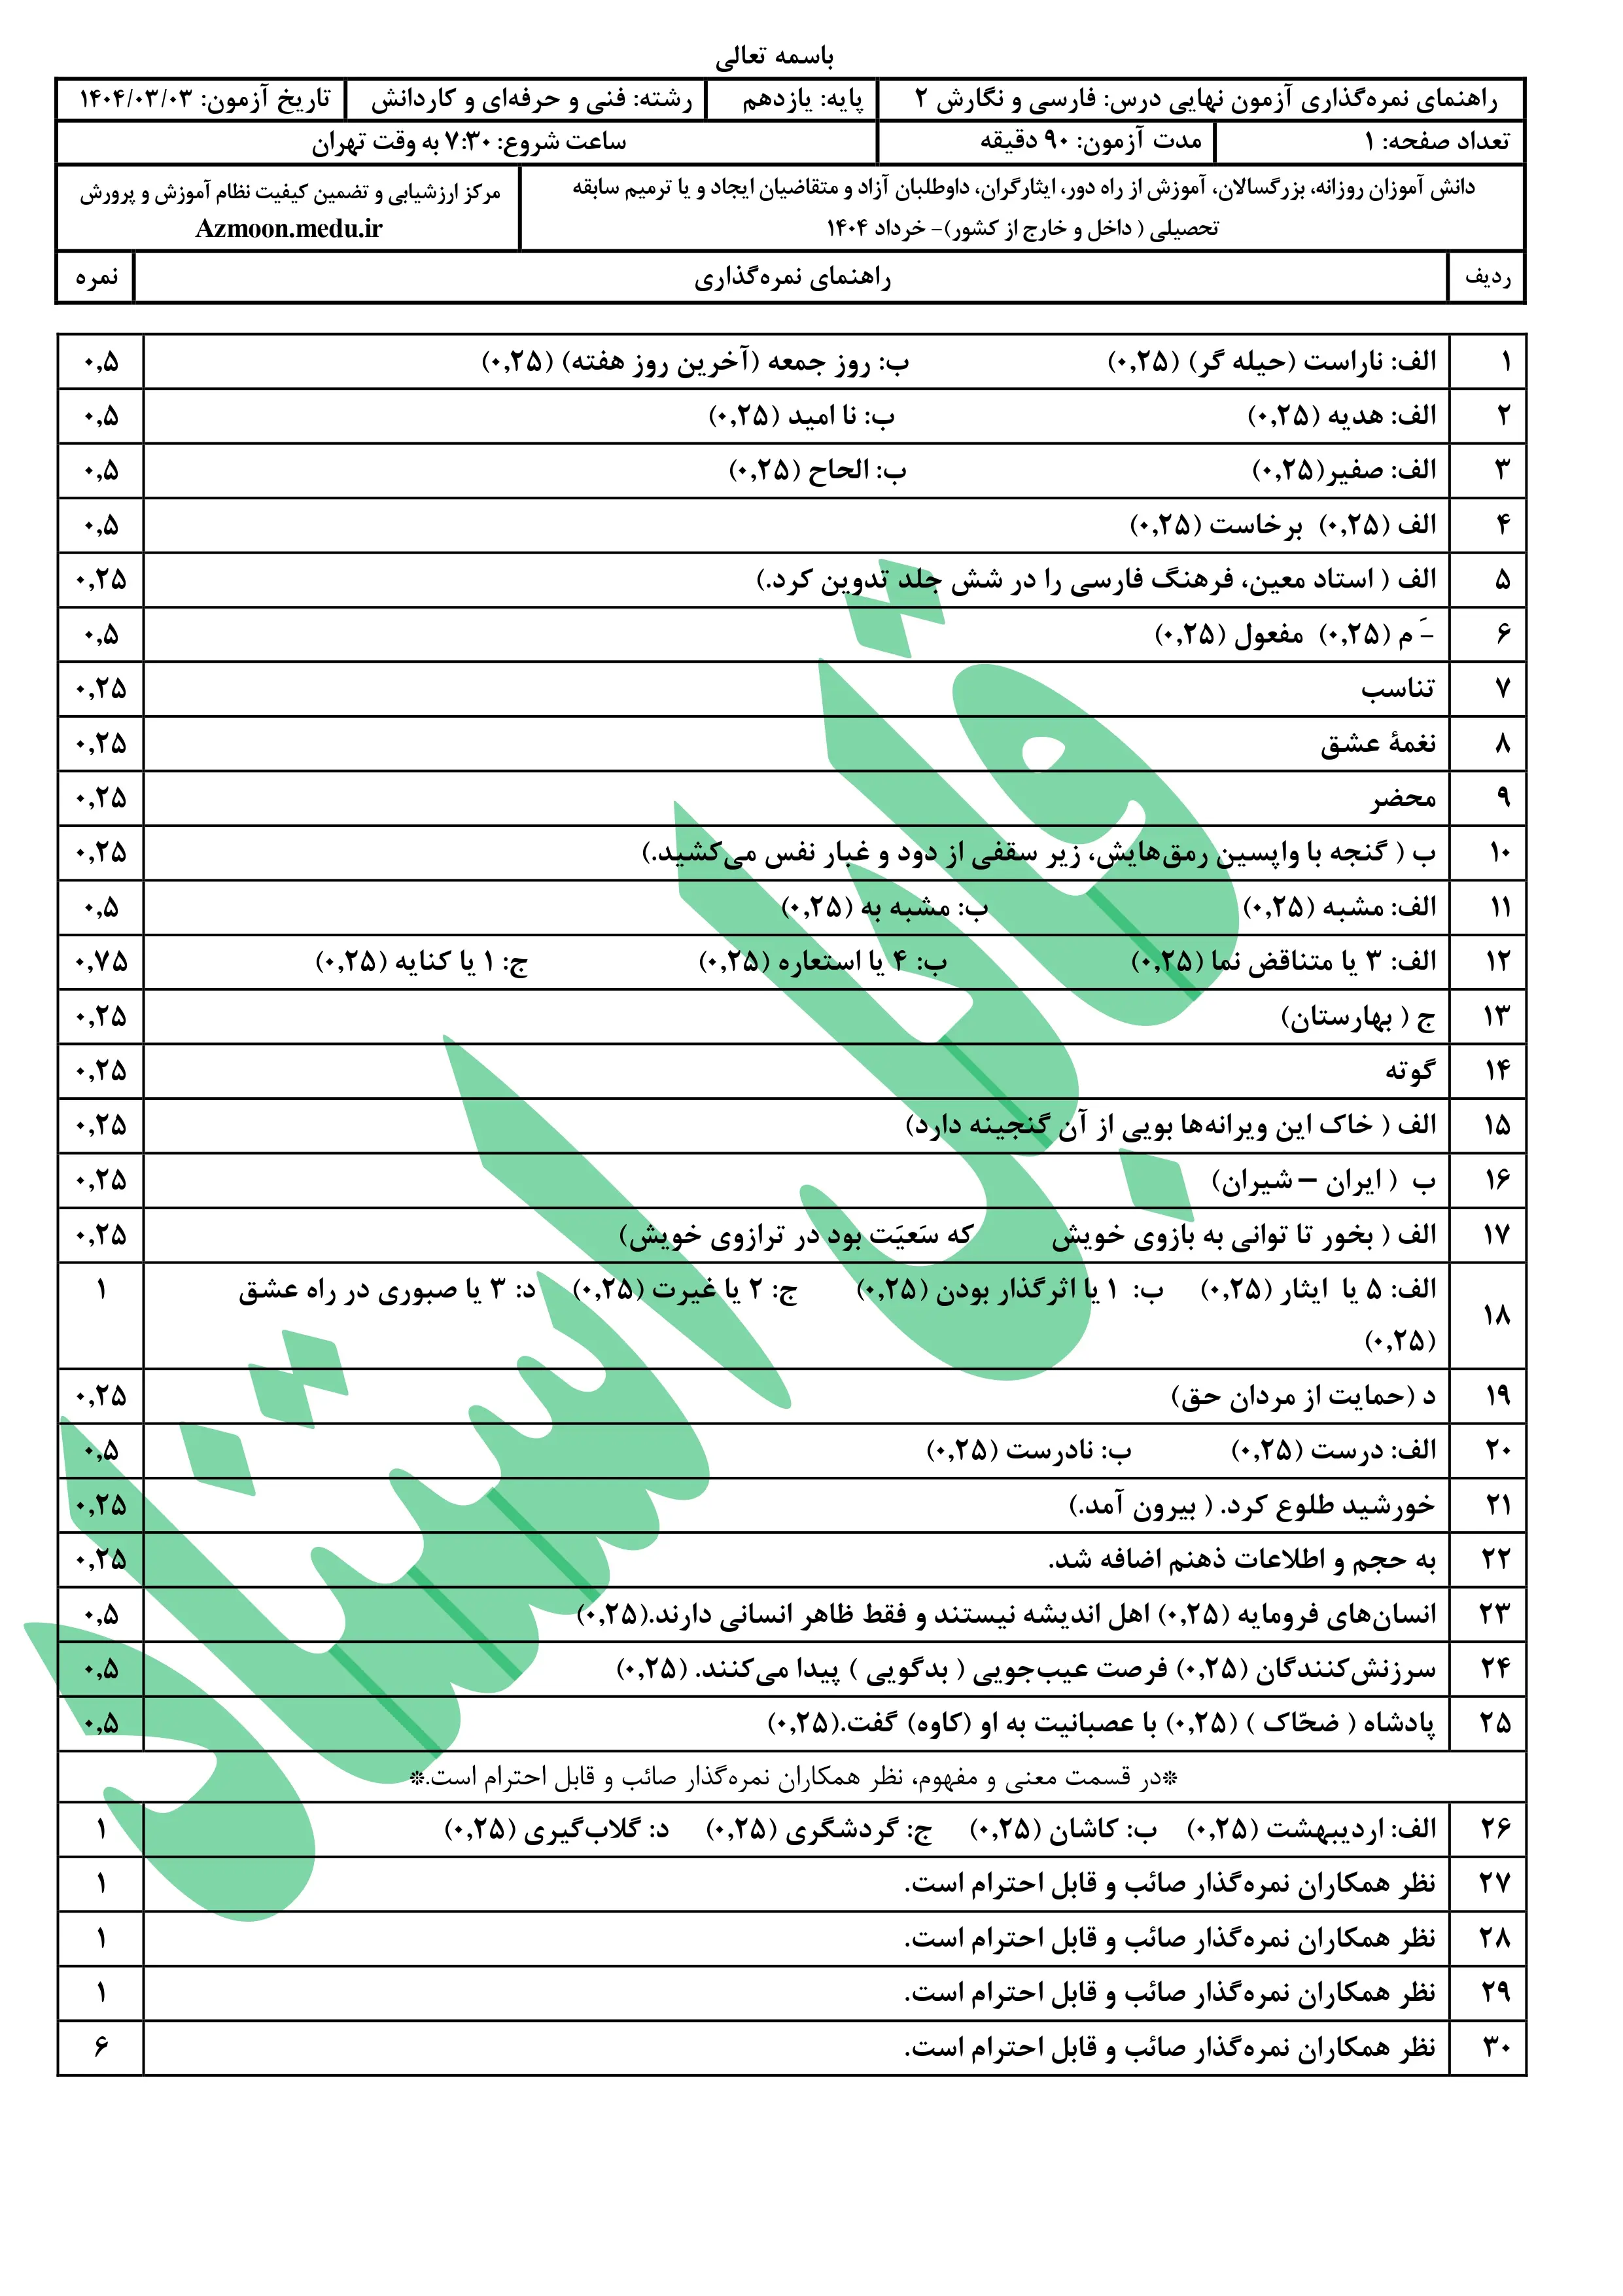 باسمه تعالی
راهنمای نمره‌گذاری آزمون نهایی درس: فارسی و نگارش ۲ پایه: یازدهم رشته: فنی و حرفه‌ای و کاردانش تاریخ آزمون: ۱۴۰۴/۰۳/۰۳
تعداد صفحه: ۱ مدت آزمون: ۹۰ دقیقه ساعت شروع: ۷:۳۰ به وقت تهران
دانش آموزان روزانه، بزرگسالان، آموزش از راه دور، ایثارگران، داوطلبان آزاد و متقاضیان ایجاد و یا ترمیم سابقه
تحصیلی ( داخل و خارج از کشور)- خرداد ۱۴۰۴
مرکز ارزشیابی و تضمین کیفیت نظام آموزش و پرورش
Azmoon.medu.ir
ردیف راهنمای نمره‌گذاری نمره
۱ الف: ناراست (حیله گر) (۰,۲۵) ب: روز جمعه (آخرین روز هفته) (۰,۲۵) ۰,۵
۲ الف: هدیه (۰,۲۵) ب: نا امید (۰,۲۵) ۰,۵
۳ الف: صفیر(۰,۲۵) ب: الحاح (۰,۲۵) ۰,۵
۴ الف (۰,۲۵) برخاست (۰,۲۵) ۰,۵
۵ الف ( استاد معین، فرهنگ فارسی را در شش جلد تدوین کرد.) ۰,۲۵
۶ ـَ م (۰,۲۵) مفعول (۰,۲۵) ۰,۵
۷ تناسب ۰,۲۵
۸ نغمهٔ عشق ۰,۲۵
۹ محضر ۰,۲۵
۱۰ ب ( گنجه با واپسین رمق‌هایش، زیر سقفی از دود و غبار نفس می‌کشید.) ۰,۲۵
۱۱ الف: مشبه (۰,۲۵) ب: مشبه به (۰,۲۵) ۰,۵
۱۲ الف: ۳ یا متناقض نما (۰,۲۵) ب: ۴ یا استعاره (۰,۲۵) ج: ۱ یا کنایه (۰,۲۵) ۰,۷۵
۱۳ ج ( بهارستان) ۰,۲۵
۱۴ گوته ۰,۲۵
۱۵ الف ( خاک این ویرانه‌ها بویی از آن گنجینه دارد) ۰,۲۵
۱۶ ب ( ایران – شیران) ۰,۲۵
۱۷ الف ( بخور تا توانی به بازوی خویش که سَعیَت بود در ترازوی خویش) ۰,۲۵
۱۸ الف: ۵ یا ایثار (۰,۲۵) ب: ۱ یا اثرگذار بودن (۰,۲۵) ج: ۲ یا غیرت (۰,۲۵) د: ۳ یا صبوری در راه عشق ۱
(۰,۲۵)
۱۹ د (حمایت از مردان حق) ۰,۲۵
۲۰ الف: درست (۰,۲۵) ب: نادرست (۰,۲۵) ۰,۵
۲۱ خورشید طلوع کرد. ( بیرون آمد.) ۰,۲۵
۲۲ به حجم و اطلاعات ذهنم اضافه شد. ۰,۲۵
۲۳ انسان‌های فرومایه (۰,۲۵) اهل اندیشه نیستند و فقط ظاهر انسانی دارند.(۰,۲۵) ۰,۵
۲۴ سرزنش‌کنندگان (۰,۲۵) فرصت عیب‌جویی ( بدگویی ) پیدا می‌کنند. (۰,۲۵) ۰,۵
۲۵ پادشاه ( ضحّاک ) (۰,۲۵) با عصبانیت به او (کاوه) گفت.(۰,۲۵) ۰,۵
*در قسمت معنی و مفهوم، نظر همکاران نمره‌گذار صائب و قابل احترام است.*
۲۶ الف: اردیبهشت (۰,۲۵) ب: کاشان (۰,۲۵) ج: گردشگری (۰,۲۵) د: گلاب‌گیری (۰,۲۵) ۱
۲۷ نظر همکاران نمره‌گذار صائب و قابل احترام است. ۱
۲۸ نظر همکاران نمره‌گذار صائب و قابل احترام است. ۱
۲۹ نظر همکاران نمره‌گذار صائب و قابل احترام است. ۱
۳۰ نظر همکاران نمره‌گذار صائب و قابل احترام است. ۶
قابل استناد